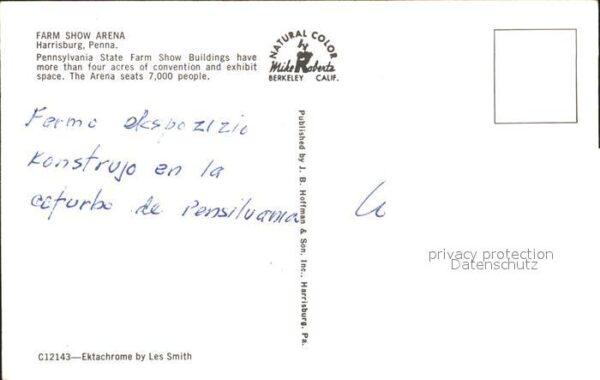 FARM SHOW ARENA
Harrisburg, Penna.
Pennsylvania State Farm Show Buildings have
more than four acres of convention and exhibit
space. The Arena seats 7,000 people.
NATURAL COLOR
by
Mike Roberts
BERKELEY CALIF.
Farmo ekspozizio
Konstrujo en la
ĉefurbo de Pensilvania
Published by J. B. Hoffman & Son, Inc., Harrisburg, Pa.
privacy protection
Datenschutz
C12143—Ektachrome by Les Smith